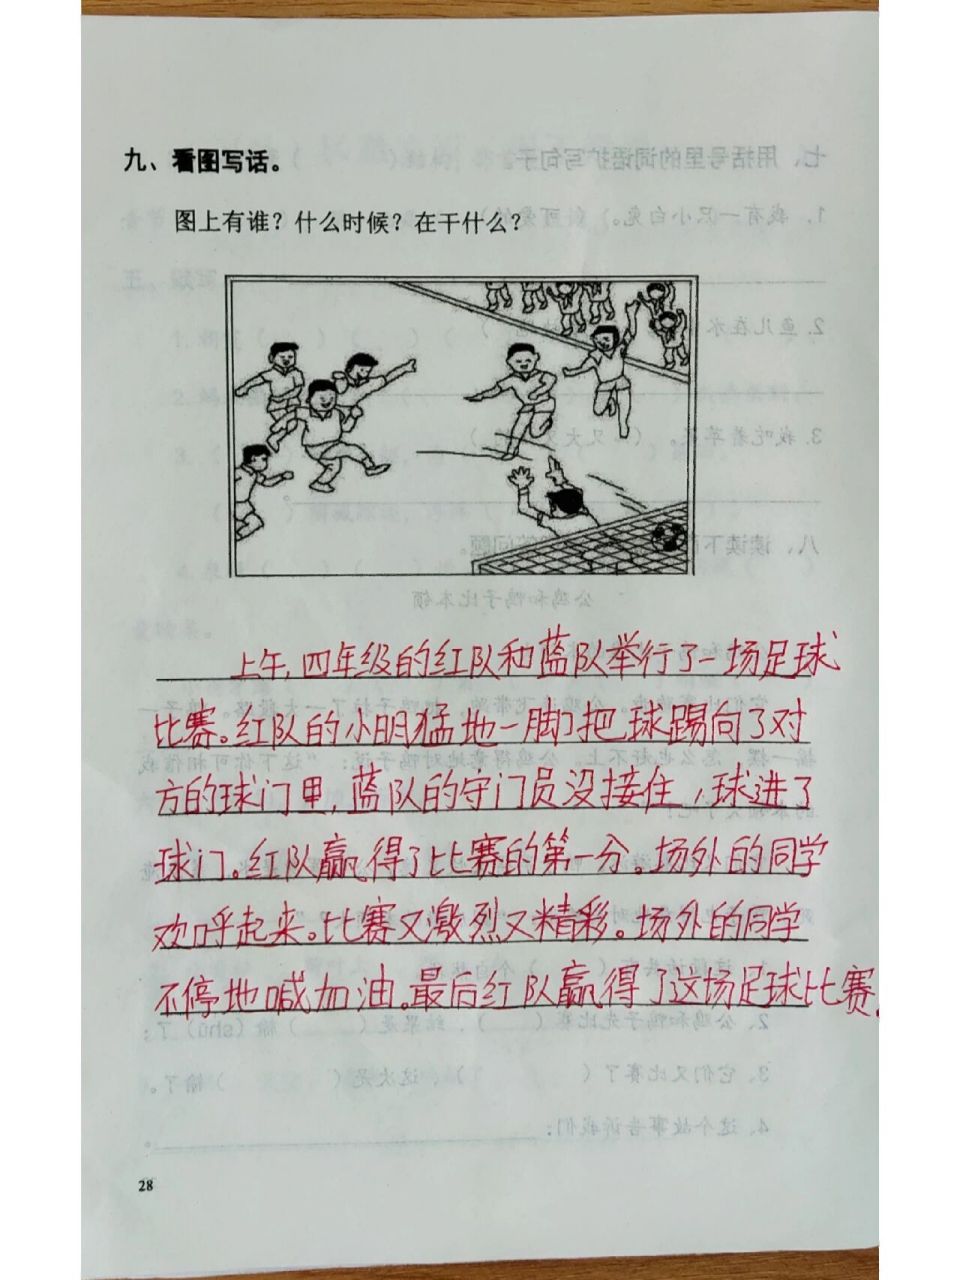 九、看图写话。
图上有谁？什么时候？在干什么？
上午，四年级的红队和蓝队举行了一场足球
比赛。红队的小明猛地一脚把球踢向了对
方的球门里，蓝队的守门员没接住，球进了
球门。红队赢得了比赛的第一分。场外的同学
欢呼起来。比赛又激烈又精彩。场外的同学
不停地喊加油。最后红队赢得了这场足球比赛。
28